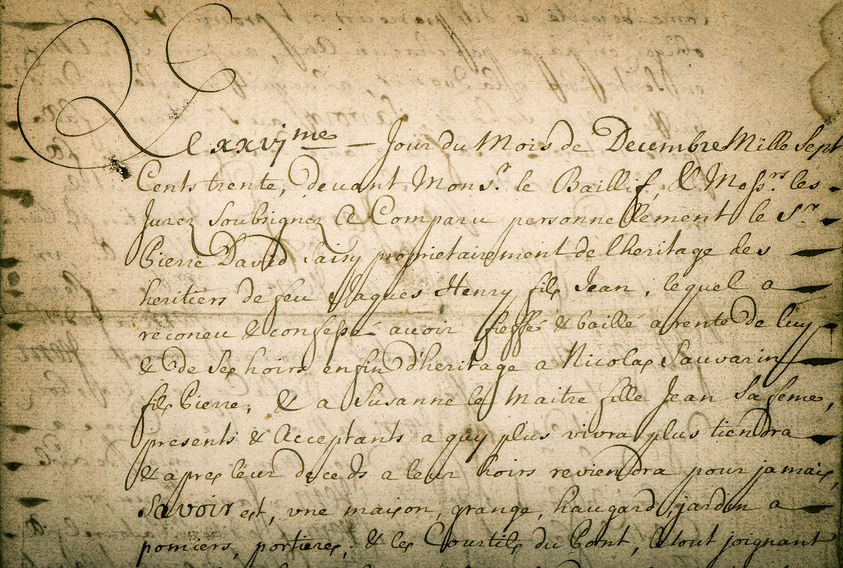 Le xxvj.me — Jour du Mois de Decembre Mille Sept
Cents trente, devant Mons.r le Baillif, & Mess.rs les
Jurez Soubsignez Est Comparu personnellement le S.r
Pierre David Saisy proprietairement de l'heritage des
heritiers de feu Jaques Henry fils Jean, lequel a
reconeu & confessé avoir fieffé & baillé a rente de luy
& de ses hoirs enfin d'heritage a Nicolas Sauvarin
fils Pierre, & a Susanne le Maitre fille Jean Sa feme,
presents & Acceptants a quy plus vivra plus tiendra
& apres leur deceds a leur hoirs reviendra pour jamais,
Savoir est, une maison, grange, haugard, jardin a
pomiers, portieres, & les Courtils du Pont, le tout joignant